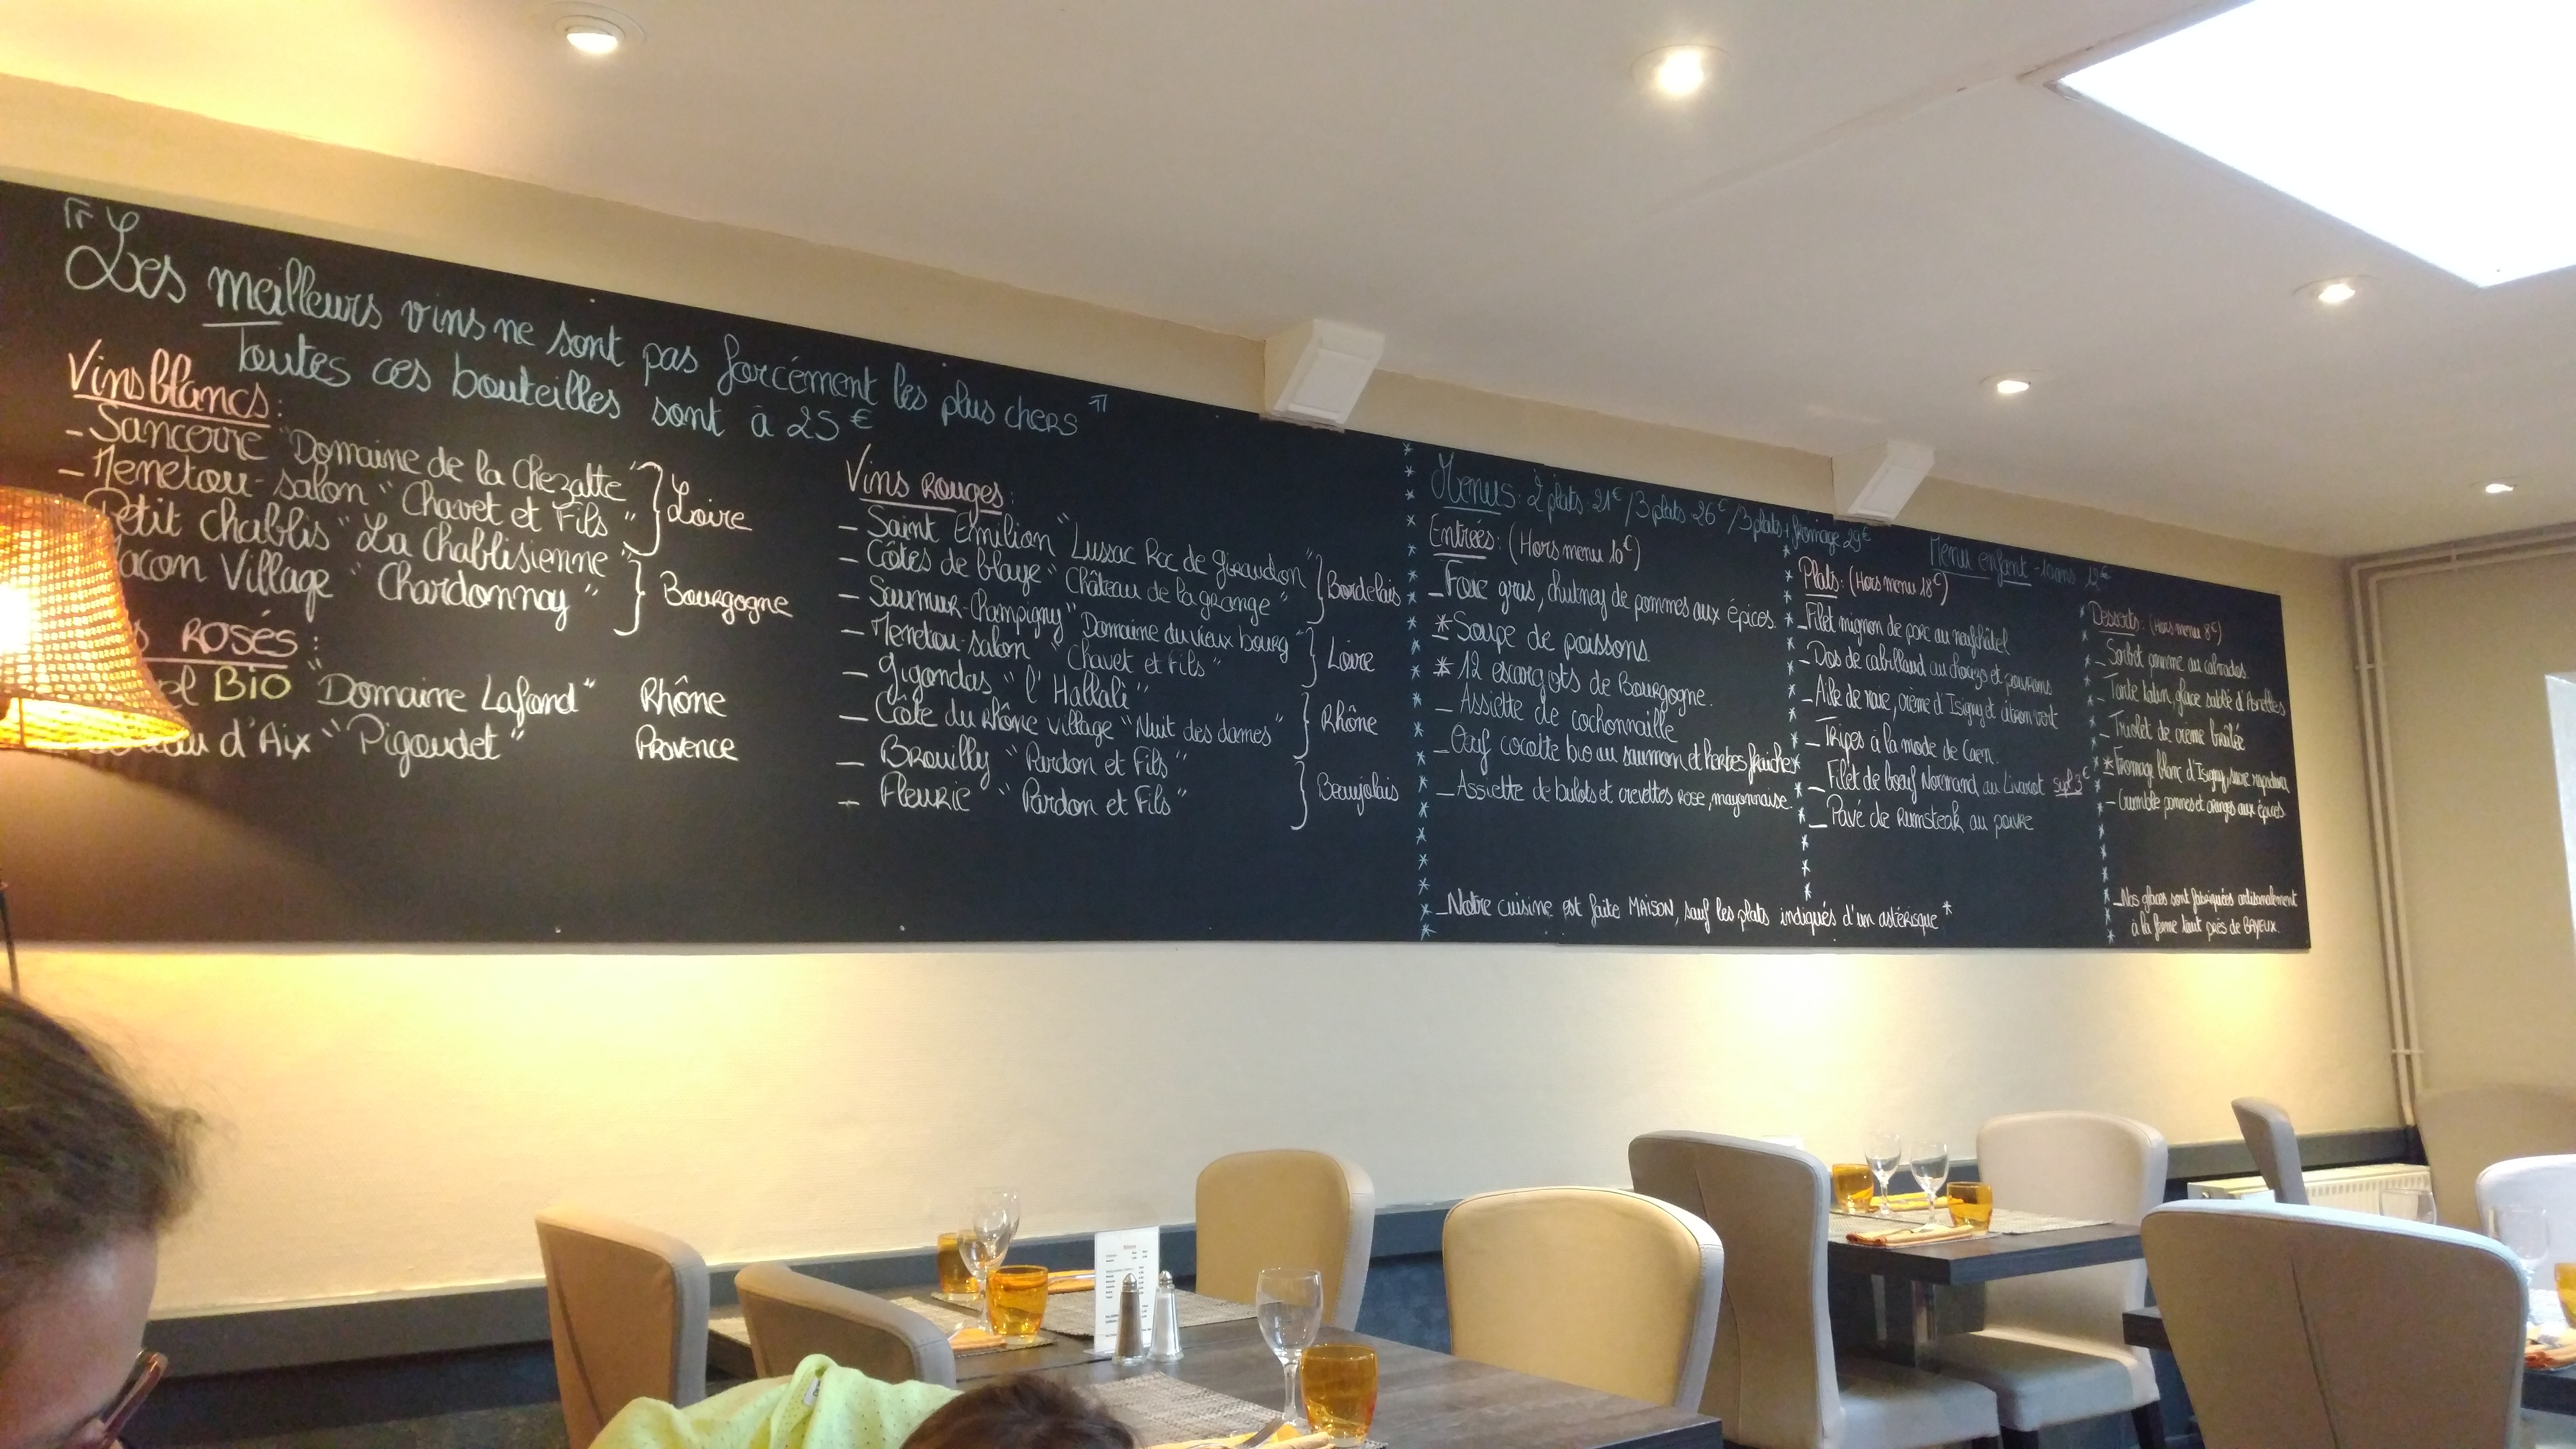 "Les meilleurs vins ne sont pas forcément les plus chers"
Toutes ces bouteilles sont à 25€
Vins blancs:
- Sancerre "Domaine de la Chezatte"
- Menetou-salon "Chavet et Fils"
Loire
Petit Chablis "La Chablisienne"
acon Village "Chardonnay"
Bourgogne
s ROSÉS:
el Bio "Domaine Lafond" Rhône
d'Aix "Pigoudet" Provence
Vins Rouges:
- Saint Emilion "Lussac Roc de Giraudon"
- Côtes de blaye "Château de la grange"
Bordelais
- Saumur-Champigny "Domaine du vieux bourg"
- Menetou-salon "Chavet et Fils"
Loire
- Gigondas "l'Hallali"
- Côte du Rhône village "Nuit des dames"
Rhône
- Brouilly "Pardon et Fils"
- Fleurie "Pardon et Fils"
Beaujolais
Menus: 2 plats 21€/3 plats 26€/3 plats + fromage 29€
Entrées: (Hors menu 10€)
- Foie gras, chutney de pommes aux épices.
* Soupe de poissons.
* 12 escargots de Bourgogne.
- Assiette de cochonnaille
- Oeuf cocotte bio au saumon et herbes fraiches
- Assiette de bulots et crevettes rose, mayonnaise.
- Notre cuisine est faite MAISON, sauf les plats indiqués d'un astérisque *
Menu enfant -10ans 12€
Plats: (Hors menu 18€)
- Filet mignon de porc au neufchâtel
- Dos de cabillaud au chorizo et poivrons
- Aile de raie, crème d'Isigny et citron vert
- Tripes à la mode de Caen.
- Filet de boeuf Normand au Livarot sup 3€
- Pavé de Rumsteak au poivre
Desserts: (Hors menu 8€)
- Sorbet pomme au calvados.
- Tarte tatin, glace sablé d'Asnelles
- Triolet de crème brûlée
* Fromage blanc d'Isigny, sucre
- Crumble pommes et oranges aux épices
- Nos glaces sont fabriquées artisanalement
à la ferme tout près de BAYEUX.